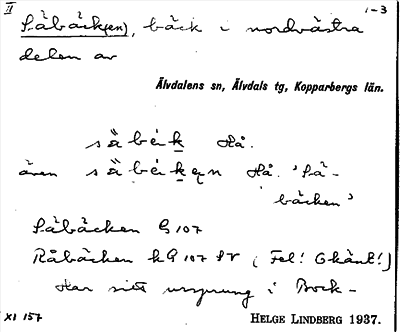 II 1-3
Såbäck(en), bäck i nordvästra
delen av
Älvdalens sn, Älvdals tg, Kopparbergs län.
Hå.
även Hå. 'Så-
bäcken'
Såbäcken G 107
Råbäcken hG 107 ( Fel! Okänt!)
Har sitt ursprung i Bock-
XI 157 HELGE LINDBERG 1937.